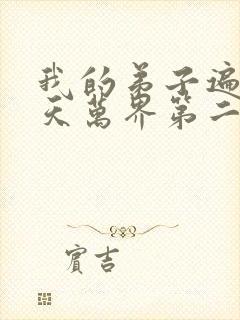 我的弟子遍
天萬界第二
賓吉